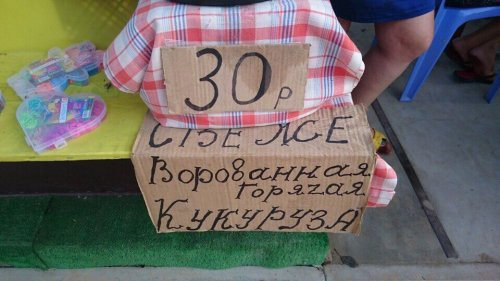 30р
Ворованная
горячая
Кукуруза